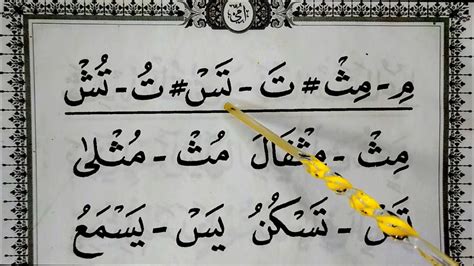 مِ - مِثْ # تَ - تَسْ # تُ - تُشْ
مِثْ - مِثْقَالَ مُثْ - مُثْلىٰ
تَسْ - تَسْكُنُ يَسْ - يَسْمَعُ